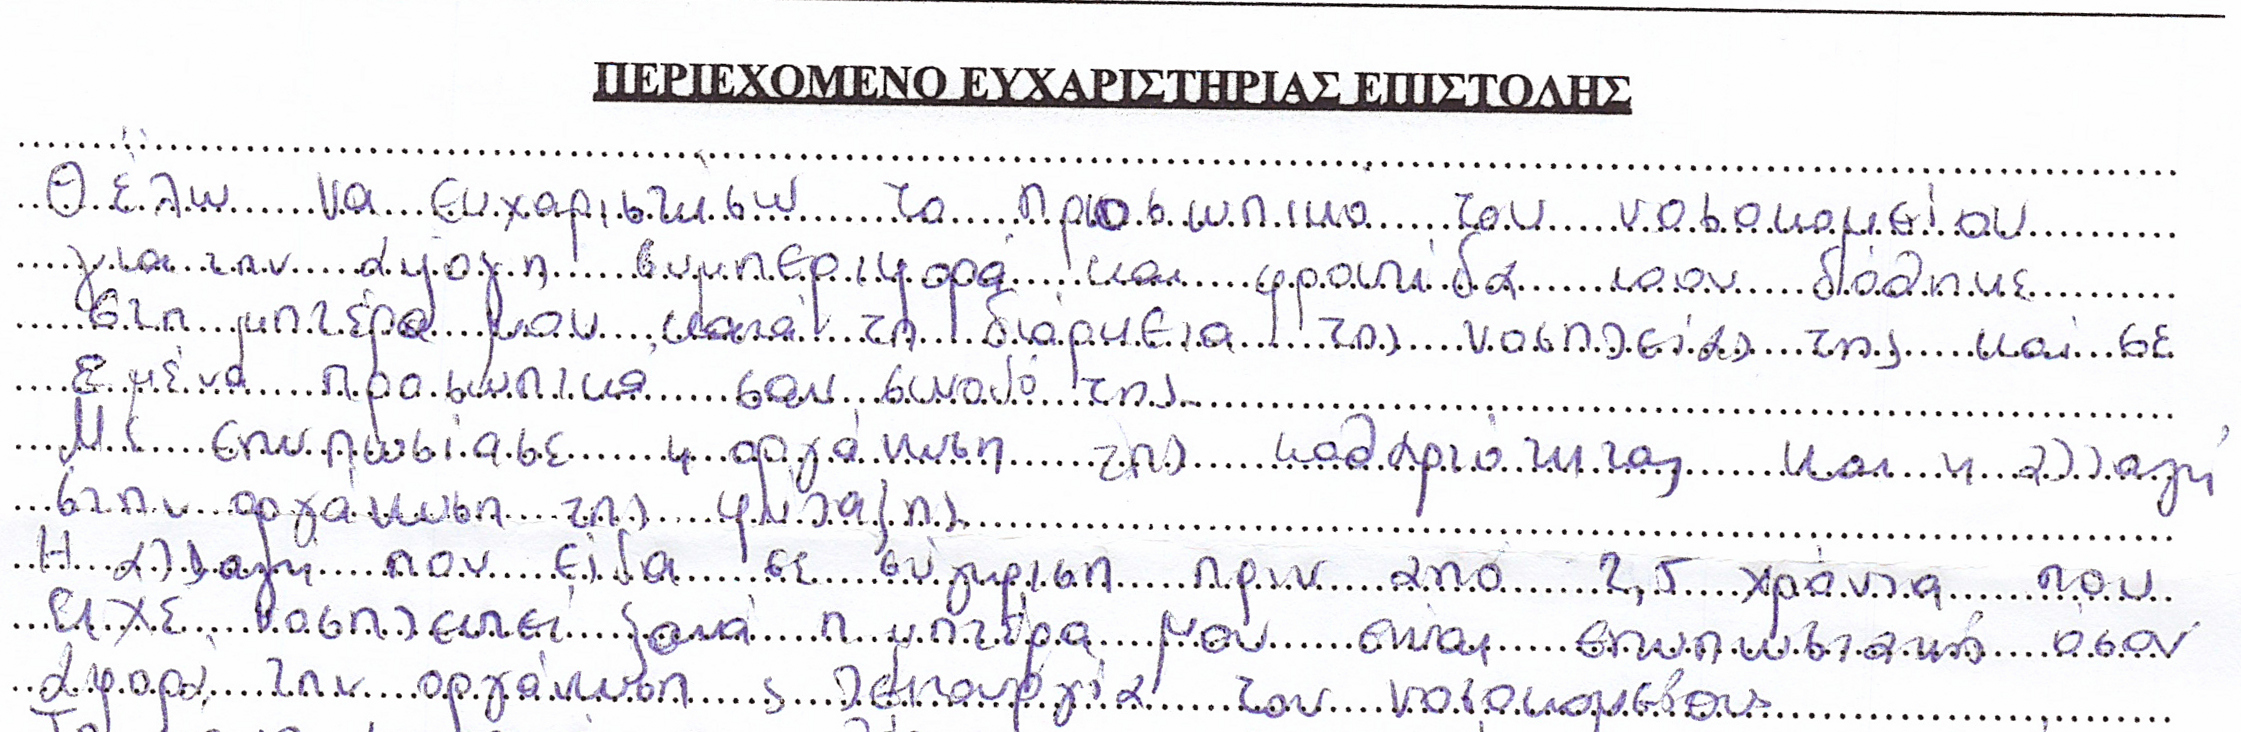 ΠΕΡΙΕΧΟΜΕΝΟ ΕΥΧΑΡΙΣΤΗΡΙΑΣ ΕΠΙΣΤΟΛΗΣ
Θέλω να ευχαριστήσω το προσωπικο του νοσοκομείου
για την άψογη συμπεριφορά και φροντίδα που δόθηκε
στη μητέρα μου κατά τη διάρκεια της νοσηλείας της και σε
εμένα προσωπικά σαν συνοδό της.
Με εντυπωσίασε η οργάνωση της καθαριότητας και η αλλαγή
στην οργάνωση της φύλαξης.
Η αλλαγή που είδα σε σύγκριση πριν από 2,5 χρόνια που
είχε νοσηλευτεί ξανά η μητέρα μου είναι εντυπωσιακή όσον
άφορά την οργάνωση ς λειτουργία του νοσοκομείου